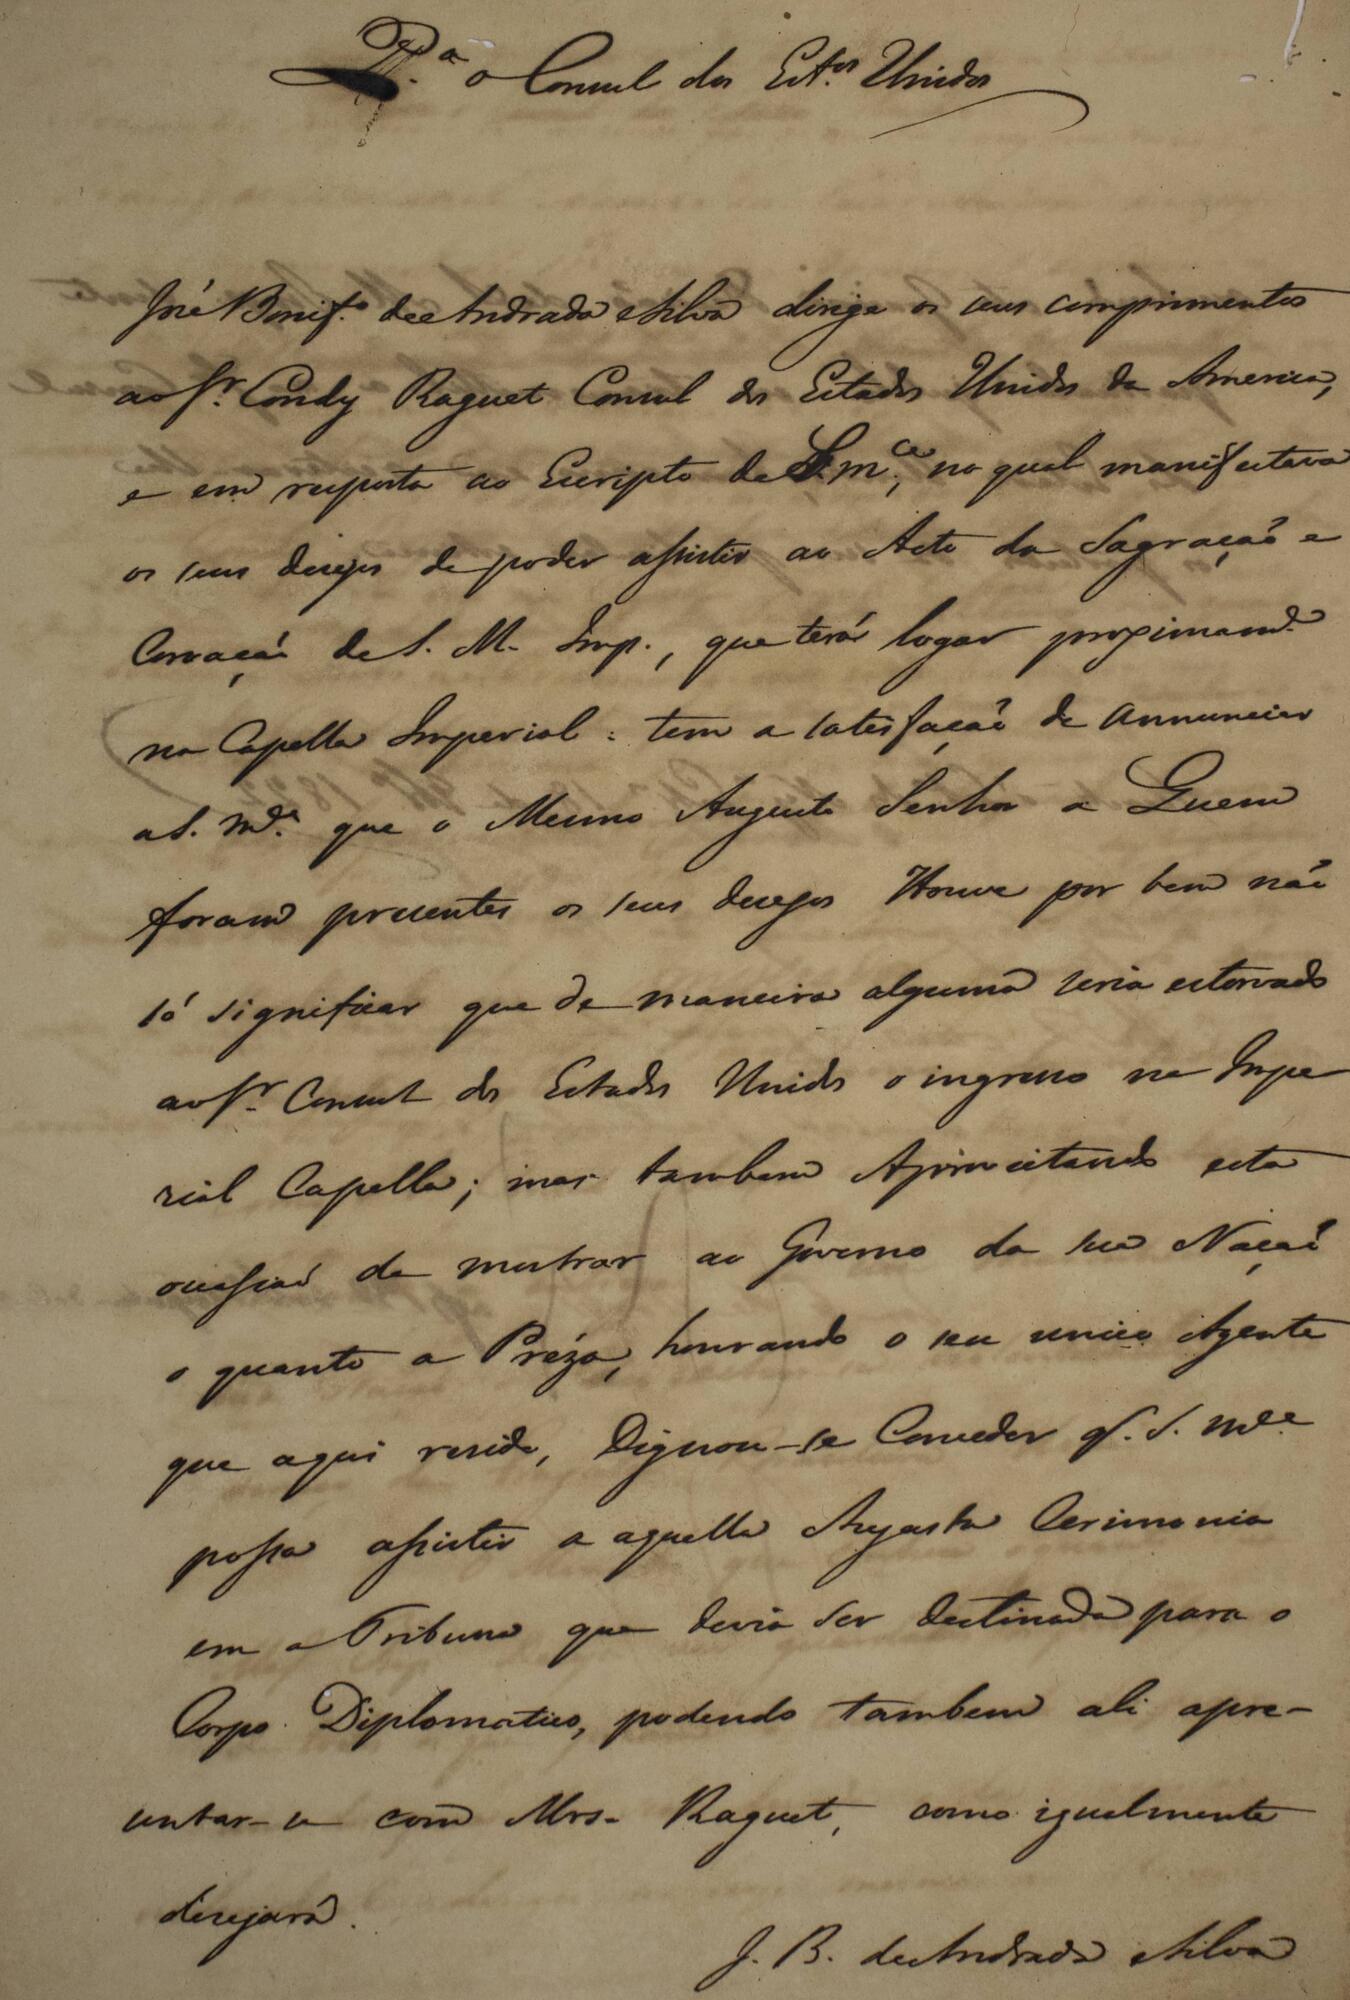 P.ª o Consul dos Est.os Unidos
José Bonif.o de Andrada e Silva dirige os seus comprimentos
ao Sr. Condy Raguet Consul dos Estados Unidos da America,
e em resposta ao Escripto de S. m.ce, no qual manifestava
os seus desejos de poder assistir ao Acto da Sagração e
Coroação de S. M. Imp., que terá logar proximam.e
na Capella Imperial: tem a satisfação de annunciar
a S. M.ce que o Mesmo Augusto Senhor a Quem
foram presentes os seus desejos Houve por bem não
só significar que de maneira alguma seria estorvado
ao Sr. Consul dos Estados Unidos o ingresso na Impe
rial Capella; mas tambem Aproveitando esta
occasião de mostrar ao Governo da sua Nação
o quanto a Préza, honrando o seu unico Agente
que aqui reside, Dignou-se Conceder q. S. M.ce
possa assistir a aquella Augusta Cerimonia
em a Tribuna que devia ser destinada para o
Corpo Diplomatico, podendo tambem ali apre-
sentar-se com Mrs. Raguet, como igualmente
desejará.
J. B. de Andrada e Silva